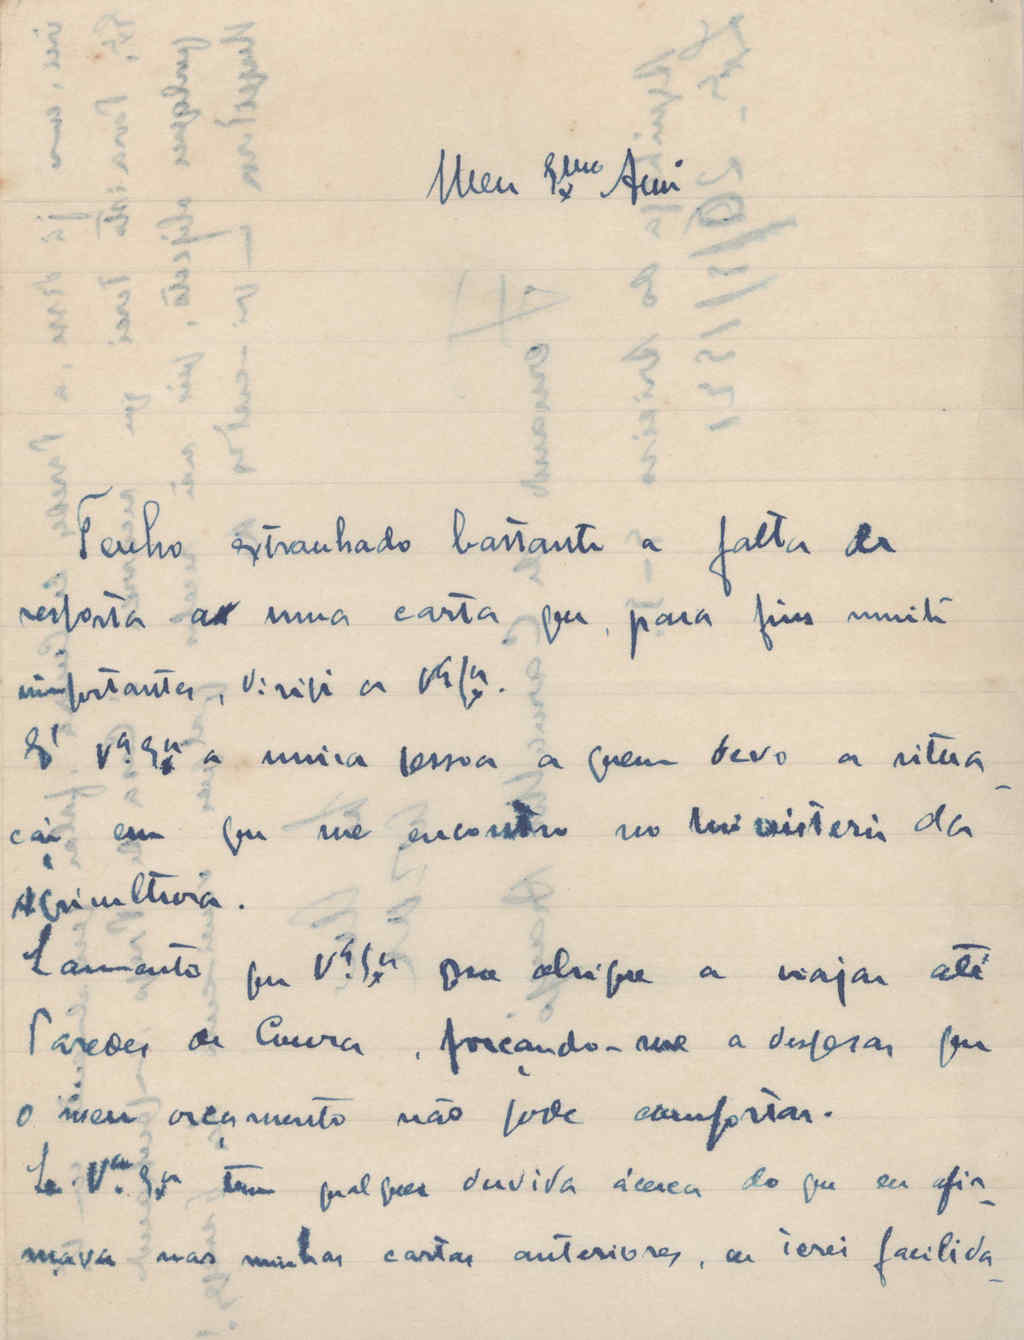 Meu Exmo Ami
Tenho extranhado bastante a falta de
resposta a uma carta que, para fins muito
importantes, dirigi a Vª Exª.
É Vª. Exª a unica pessoa a quem devo a situa-
ção em que me encontro no Ministerio da
Agricultura.
Lamento que Vª. Exª me obrigue a viajar até
Paredes de Coura, forçando-me a despesas que
o meu orçamento não pode comportar.
Se Vª. Exª tem qualquer duvida ácerca do que eu afir-
mava nas minhas cartas anteriores, eu terei facilida-